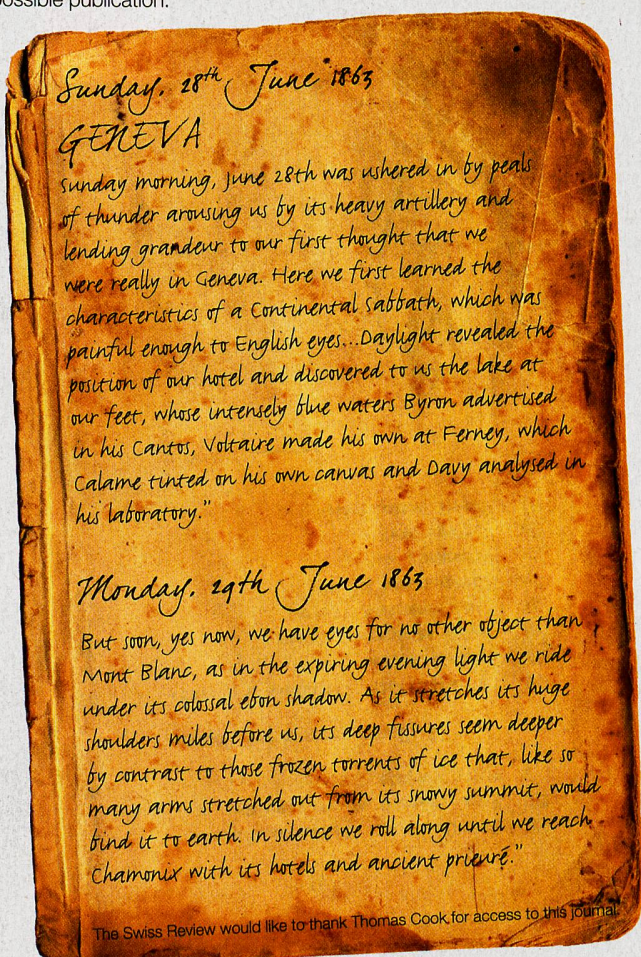 possible publication.
Sunday. 28th June 1863
GENEVA
Sunday morning, June 28th was ushered in by peals
of thunder arousing us by its heavy artillery and
lending grandeur to our first thought that we
were really in Geneva. Here we first learned the
characteristics of a Continental Sabbath, which was
painful enough to English eyes...Daylight revealed the
position of our hotel and discovered to us the lake at
our feet, whose intensely blue waters Byron advertised
in his Cantos, Voltaire made his own at Ferney, which
Calame tinted on his own canvas and Davy analysed in
his laboratory."
Monday. 29th June 1863
But soon, yes now, we have eyes for no other object than
Mont Blanc, as in the expiring evening light we ride
under its colossal ebon shadow. As it stretches its huge
shoulders miles before us, its deep fissures seem deeper
by contrast to those frozen torrents of ice that, like so
many arms stretched out from its snowy summit, would
bind it to earth. In silence we roll along until we reach
Chamonix with its hotels and ancient prieuré."
The Swiss Review would like to thank Thomas Cook for access to this journal.